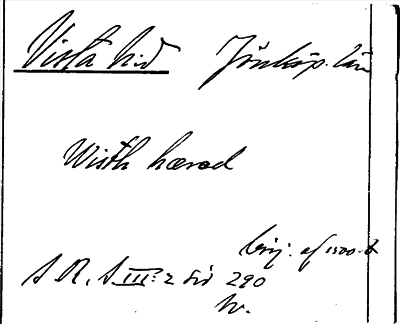 Vista hd Jönköp. län
Wisth hærad
börj. af 1500-t
S. R. S III:2 sid 290
W.